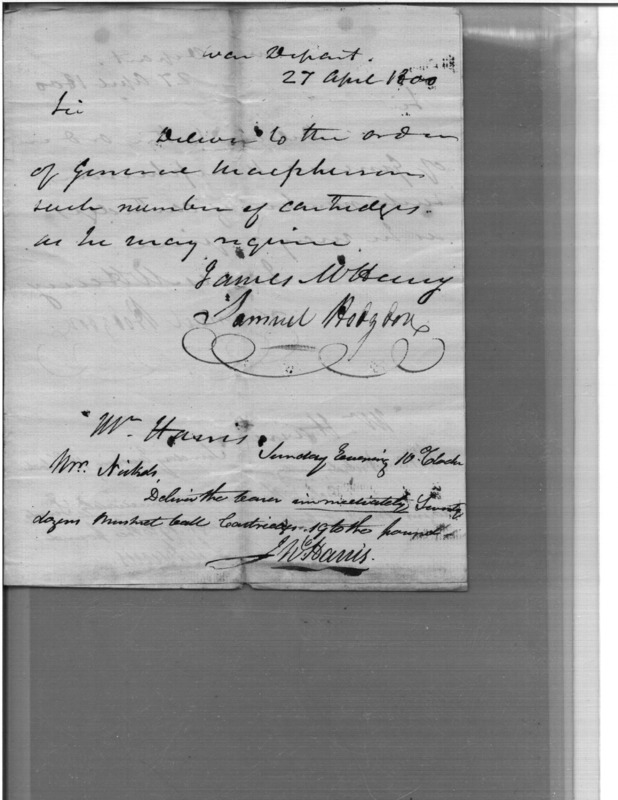 War Depart.
27 April 1800
Sir
Deliver to the order
of General Macpherson
such number of cartridges
as he may require.
James McHenry
Samuel Hodgdon
Mr. Harris
Sunday Evening 10 O'Clock
Mr. Nichols,
Deliver the bearer immediately Twenty
dozens Musket ball Cartridges 19 to the pound
Harris.